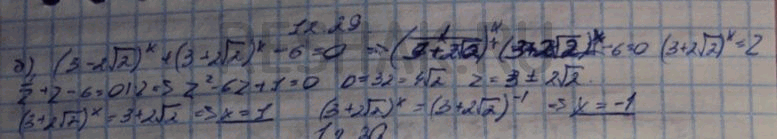 12.29
б) (3-2√2)^x + (3+2√2)^x - 6 = 0 => (1/(3+2√2))^x + (3+2√2)^x - 6 = 0 (3+2√2)^x = z
1/z + z - 6 = 0 | z => z² - 6z + 1 = 0 D = 32 = 4√2 z = 3 ± 2√2.
(3+2√2)^x = 3+2√2 => x = 1 (3+2√2)^x = (3+2√2)^-1 => x = -1
12.30